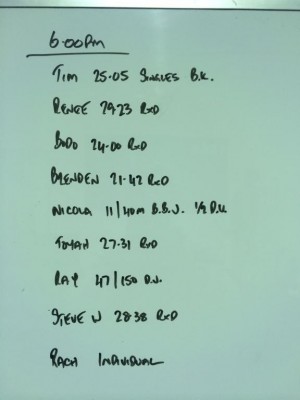 6:00pm
Tim 25.05 Singles B.K.
Renee 29.23 RxD
Bodo 24.00 RxD
Brenden 21.42 RxD
Nicola 11/40m B.B.J. 1/2 D.U.
27.31 RxD
Ray 47/150 D.U.
Steve W 28.38 RxD
Rach Individual